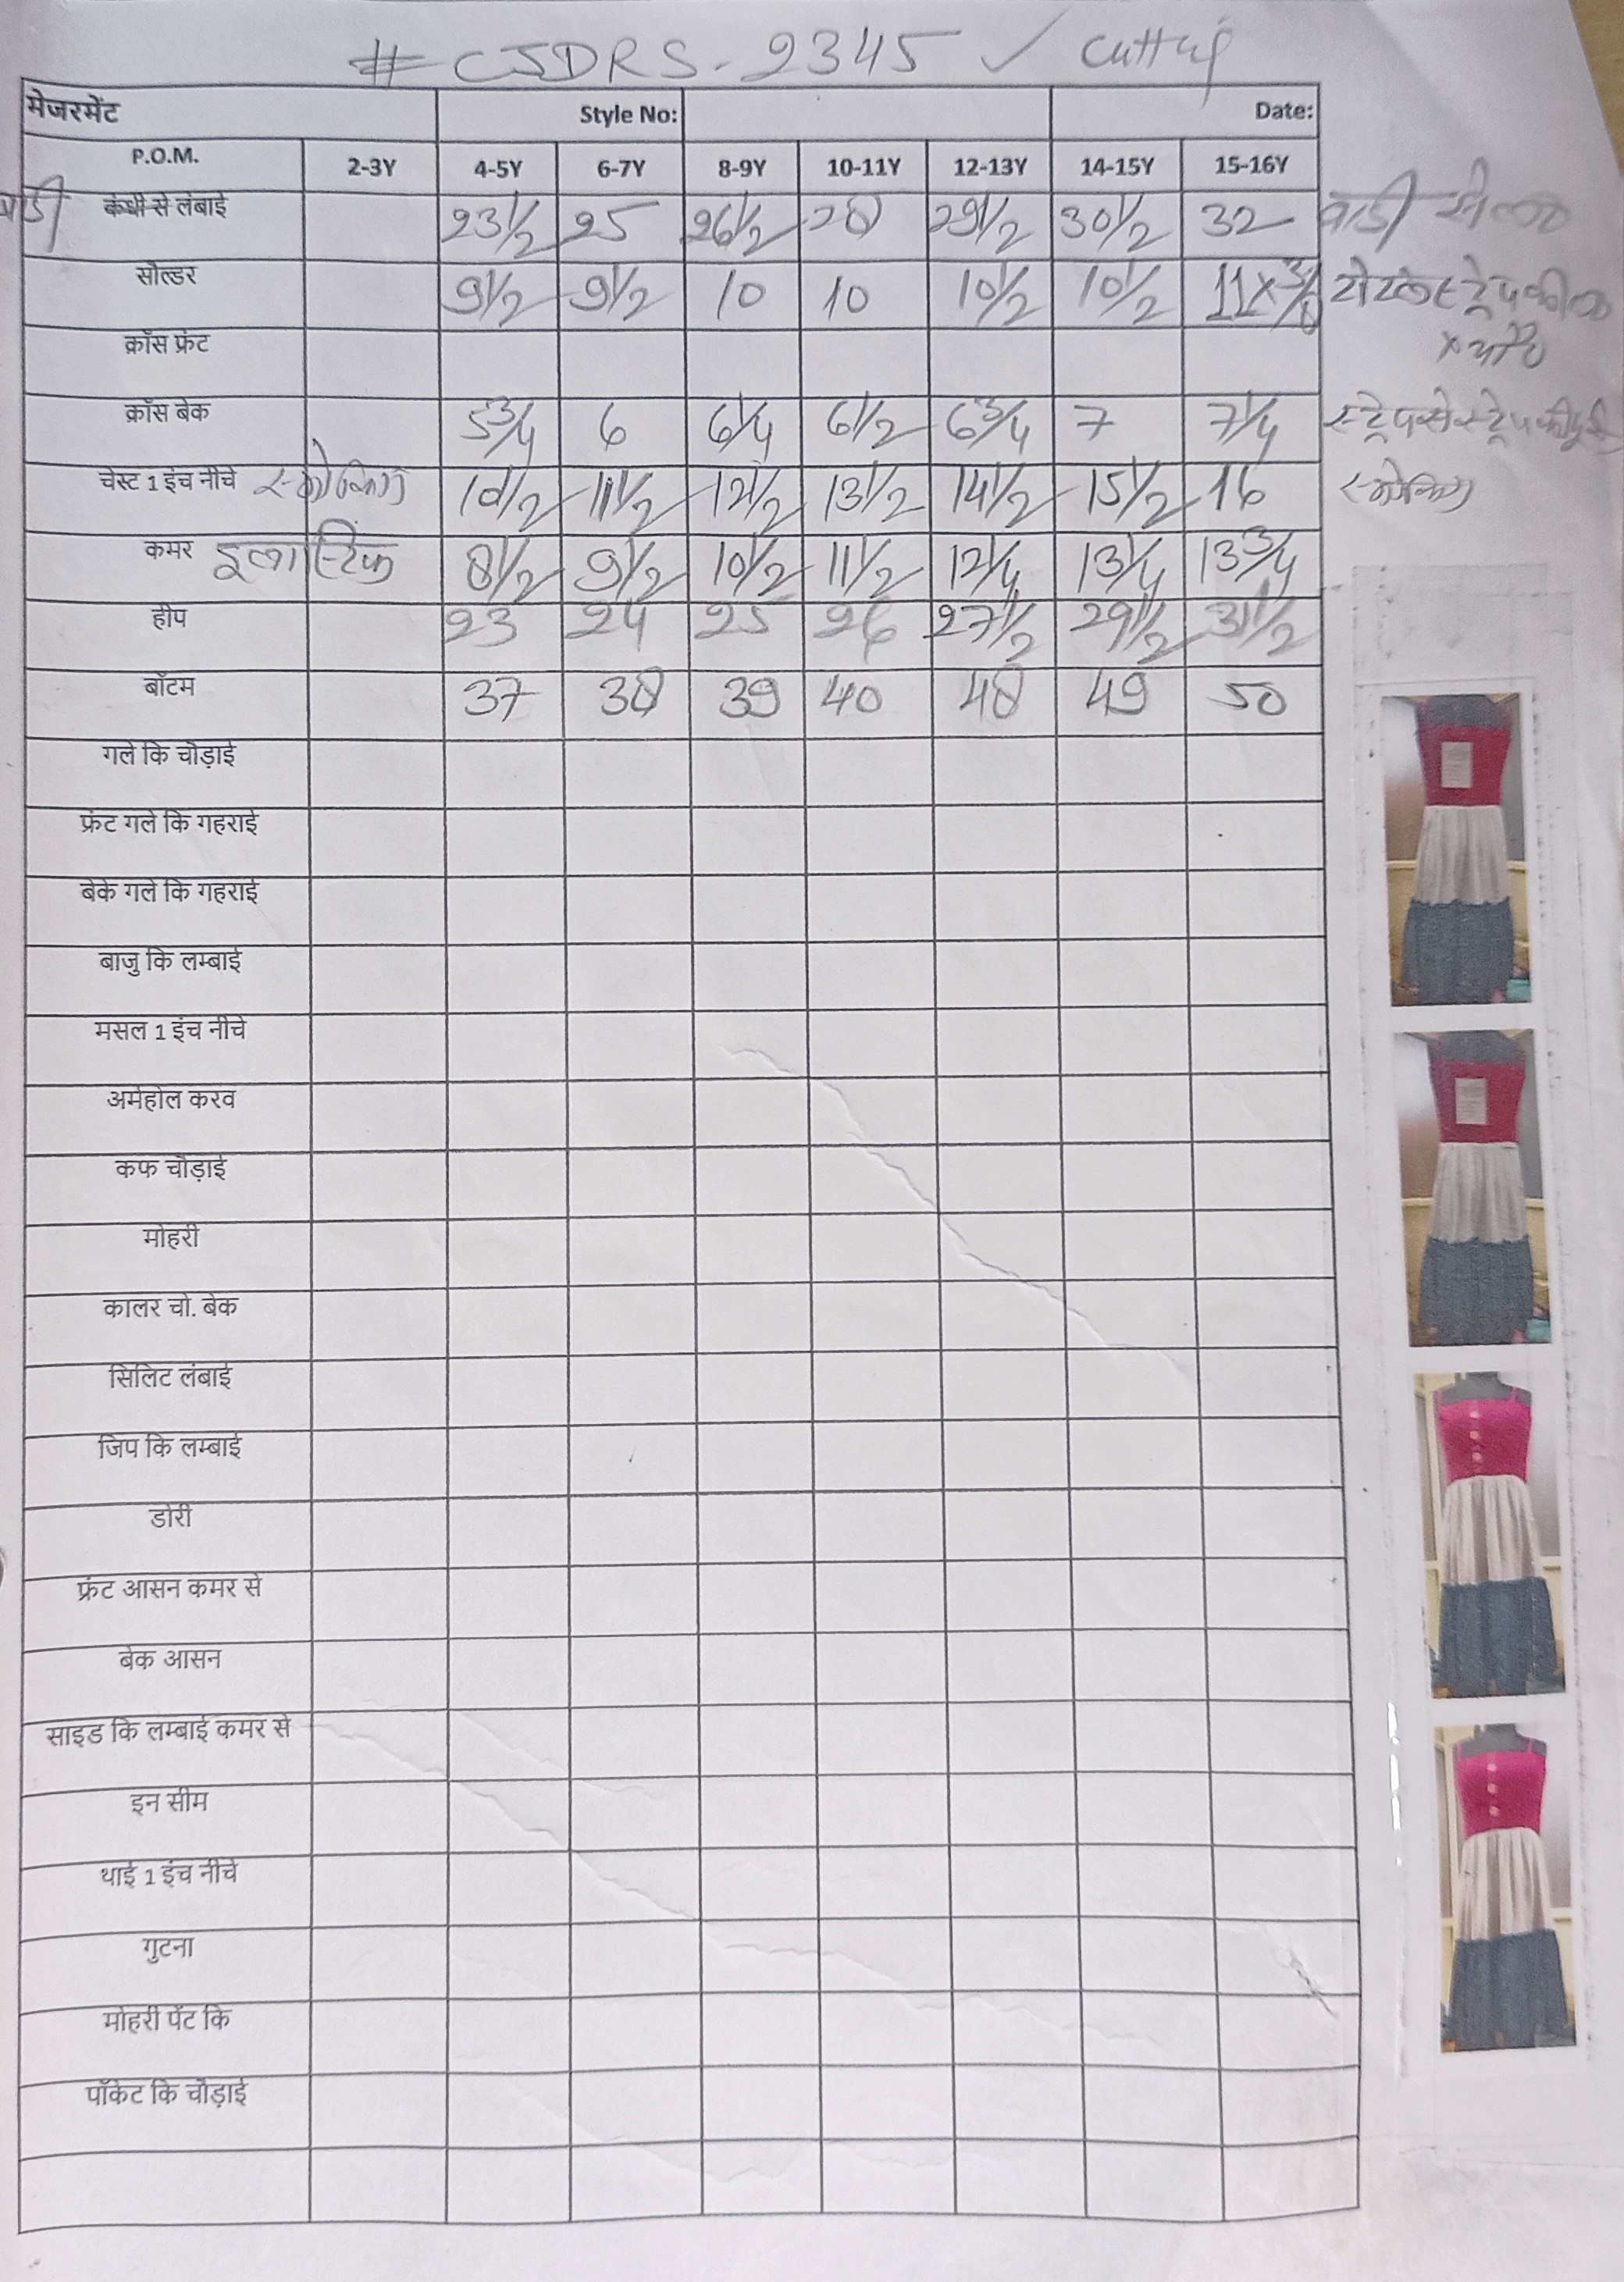 # CSDRS-2345 ✓ Cutting
मेजरमेंट Style No: Date:
P.O.M. 2-3Y 4-5Y 6-7Y 8-9Y 10-11Y 12-13Y 14-15Y 15-16Y
बाडी कंधी से लंबाई 23 1/2 25 26 1/2 28 29 1/2 30 1/2 32 बाडी से
सोल्डर 9 1/2 9 1/2 10 10 10 1/2 10 1/2 11 x 3/8 स्ट्रेप की
क्रॉस फ्रंट
क्रॉस बेक 5 3/4 6 6 1/4 6 1/2 6 3/4 7 7 1/4 स्ट्रेप से स्ट्रेप की दूरी
चेस्ट 1 इंच नीचे स्मोकिंग 10 1/2 11 1/2 12 1/2 13 1/2 14 1/2 15 1/2 16 स्मोकिंग
कमर इलास्टिक 8 1/2 9 1/2 10 1/2 11 1/2 12 1/4 13 1/4 13 3/4
हीप 23 24 25 26 27 1/2 29 1/2 31 1/2
बॉटम 37 38 39 40 48 49 50
गले कि चौड़ाई
फ्रंट गले कि गहराई
बेके गले कि गहराई
बाजु कि लम्बाई
मसल 1 इंच नीचे
अर्महोल करव
कफ चौड़ाई
मोहरी
कालर चो. बेक
सिलिट लंबाई
जिप कि लम्बाई
डोरी
फ्रंट आसन कमर से
बेक आसन
साइड कि लम्बाई कमर से
इन सीम
थाई 1 इंच नीचे
गुटना
मोहरी पेंट कि
पॉकेट कि चौड़ाई